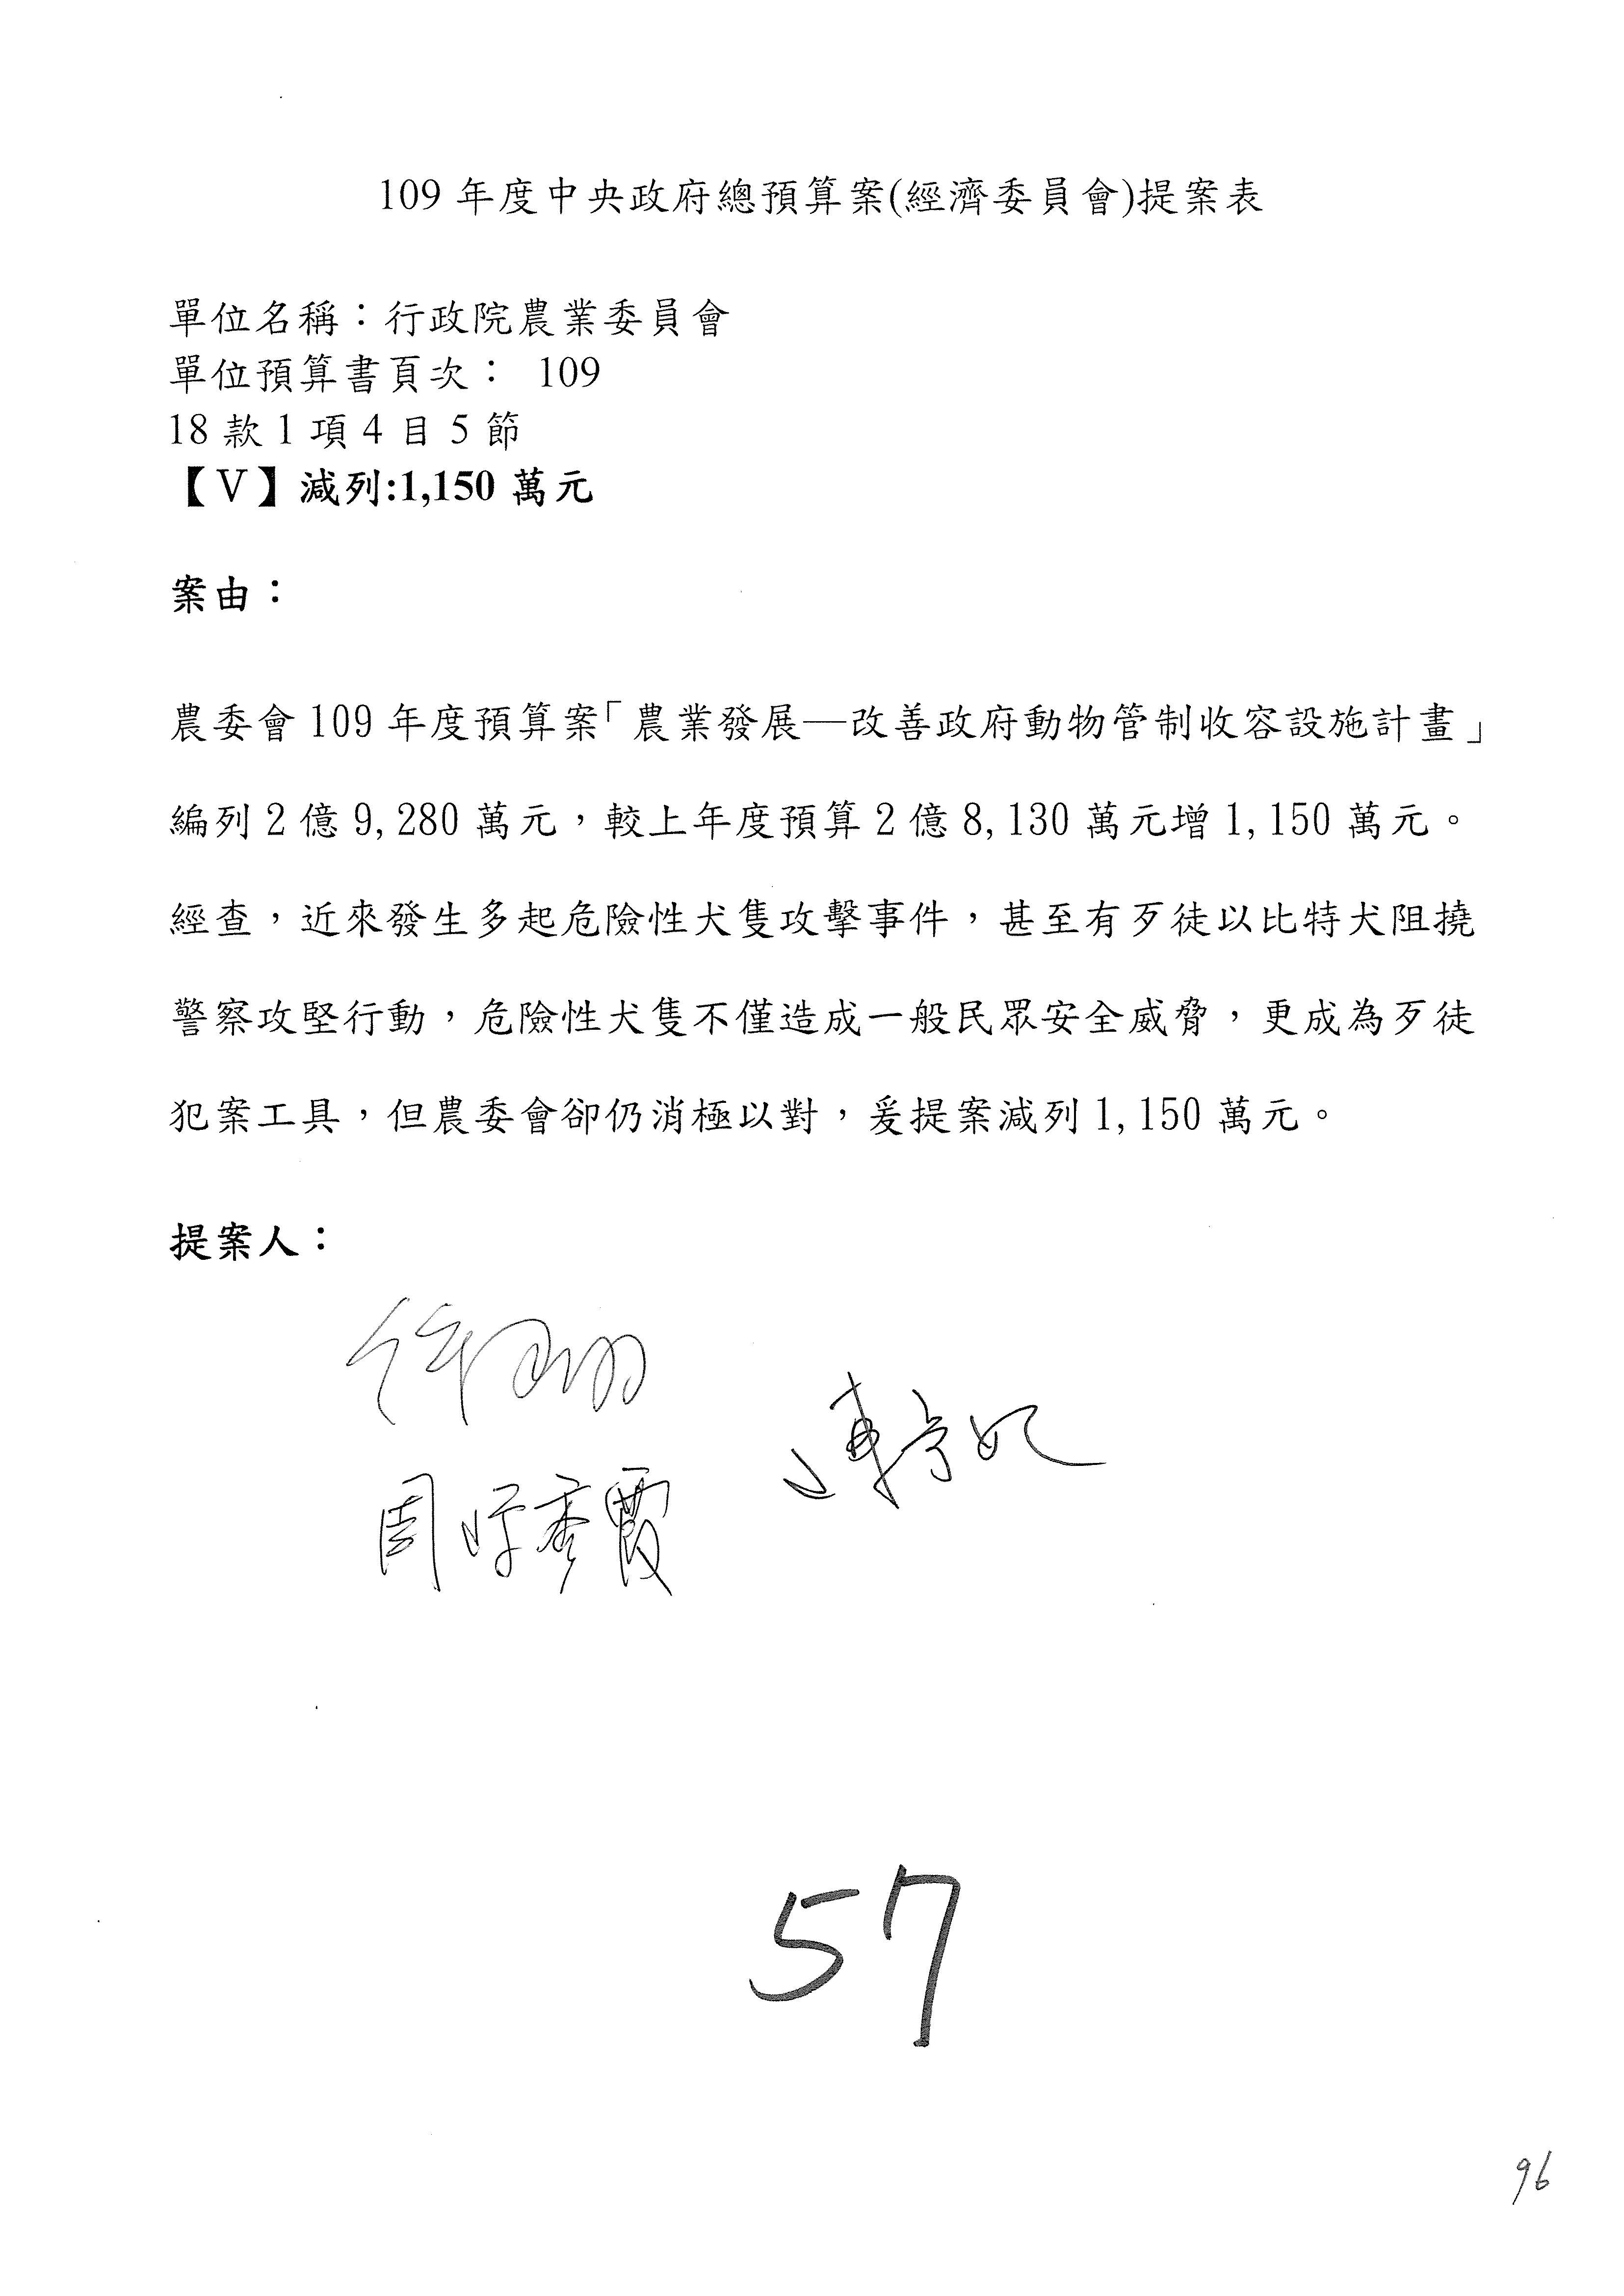 109 年度中央政府總預算案(經濟委員會)提案表
單位名稱：行政院農業委員會
單位預算書頁次： 109
18 款 1 項 4 目 5 節
【V】減列:1,150 萬元
案由：
農委會 109 年度預算案「農業發展—改善政府動物管制收容設施計畫」
編列 2 億 9,280 萬元，較上年度預算 2 億 8,130 萬元增 1,150 萬元。
經查，近來發生多起危險性犬隻攻擊事件，甚至有歹徒以比特犬阻撓
警察攻堅行動，危險性犬隻不僅造成一般民眾安全威脅，更成為歹徒
犯案工具，但農委會卻仍消極以對，爰提案減列 1,150 萬元。
提案人：
周 秀霞
57
96